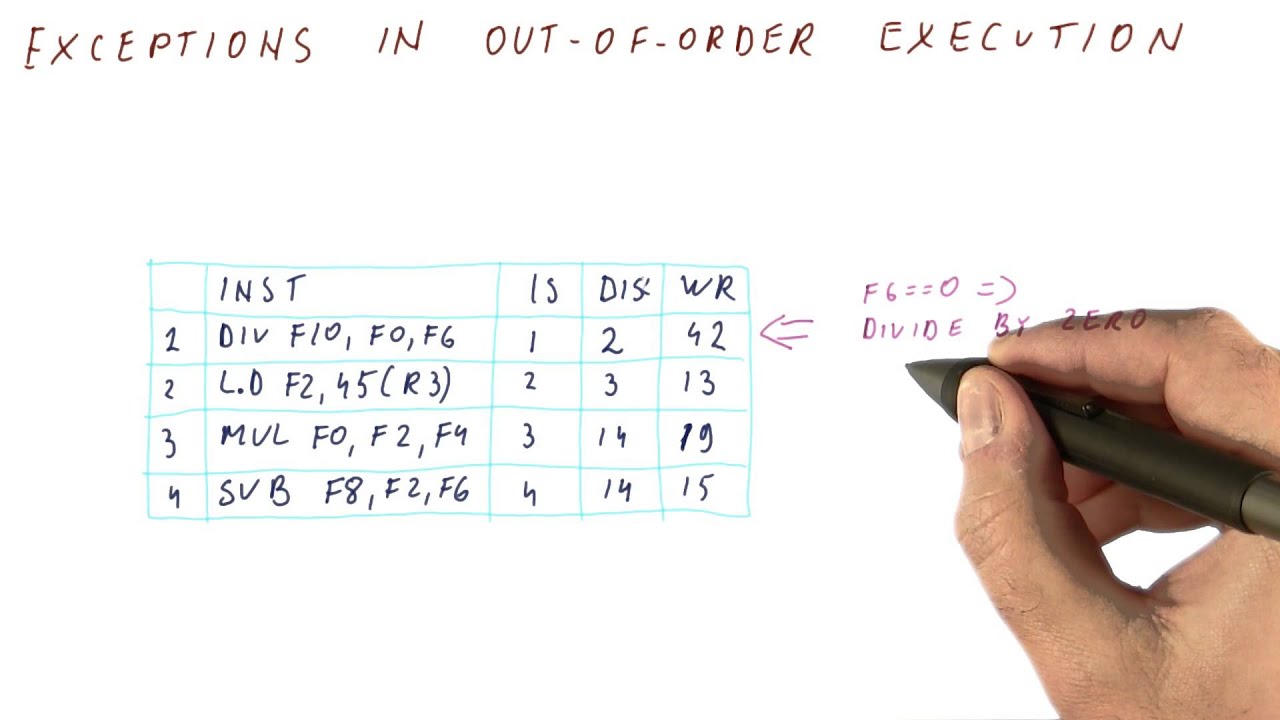 EXCEPTIONS IN OUT-OF-ORDER EXECUTION
INST IS DIS WR
1 DIV F10, F0, F6 1 2 42
2 L.D F2, 45(R3) 2 3 13
3 MUL F0, F2, F4 3 14 19
4 SUB F8, F2, F6 4 14 15
F6==0 =>
DIVIDE BY ZERO